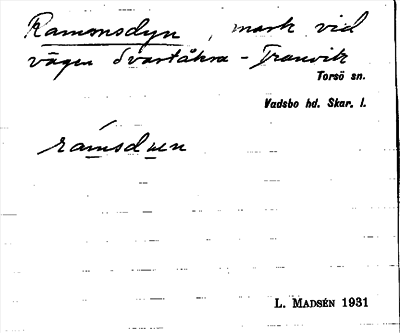 Ramonsdyn, mark vid
vägen Svartåkra - Tranvik
Torsö sn.
Vadsbo hd. Skar. l.
rámsdyen
L. MADSÉN 1931